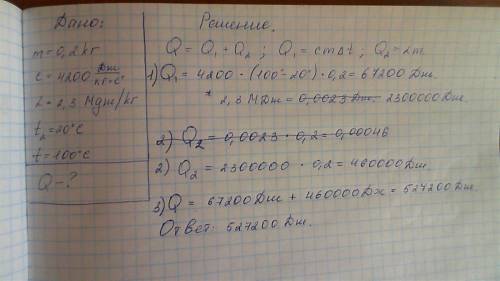 Дано:
m = 0,2 кг
c = 4200 Дж/кг·с°
λ = 2,3 Мдж/кг
t₀ = 20°C
t = 100°C
Q - ?
Решение.
Q = Q₁ + Q₂ ; Q₁ = cmΔt ; Q₂ = λm
1) Q₁ = 4200 · (100° - 20°) · 0,2 = 67200 Дж.
* 2,3 МДж = 0,0023 Дж. 2300000 Дж.
2) Q₂ = 0,0023 · 0,2 = 0,00046
2) Q₂ = 2300000 · 0,2 = 460000 Дж.
3) Q = 67200 Дж + 460000 Дж = 527200 Дж.
Ответ: 527200 Дж.